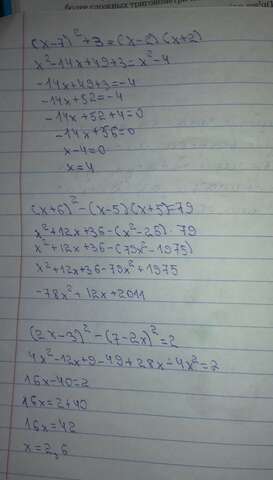 более сложных тригонометри
(x-7)²+3=(x-2)(x+2)
x²-14x+49+3=x²-4
-14x+49+3=-4
-14x+52=-4
-14x+52+4=0
-14x+56=0
x-4=0
x=4
(x+6)²-(x-5)(x+5)=79
x²+12x+36-(x²-25)·79
x²+12x+36-(79x²-1975)
x²+12x+36-79x²+1975
-78x²+12x+2011
(2x-3)²-(7-2x)²=2
4x²-12x+9-49+28x-4x²=2
16x-40=2
16x=2+40
16x=42
x=2,6